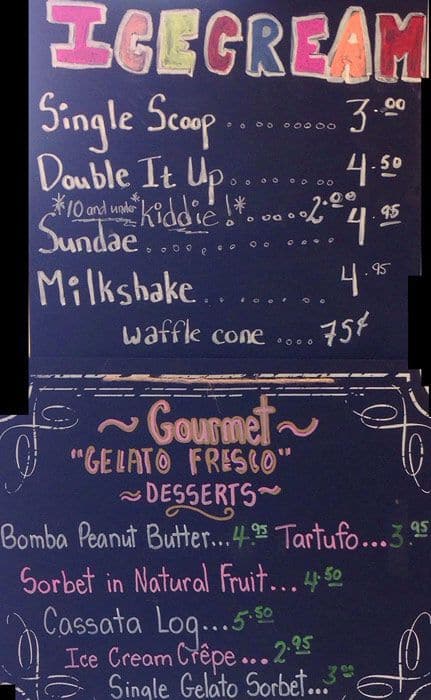 ICECREAM
Single Scoop .......... 3.00
Double It Up .......... 4.50
*10 and under* kiddie!* ...... 2.00
Sundae .......... 4.95
Milkshake ....... 4.95
waffle cone .... 75¢
~ Gourmet ~
"GELATO FRESCO"
~ DESSERTS ~
Bomba Peanut Butter... 4.95 Tartufo... 3.95
Sorbet in Natural Fruit... 4.50
Cassata Log... 5.50
Ice Cream Crêpe ... 2.95
Single Gelato Sorbet... 3.00